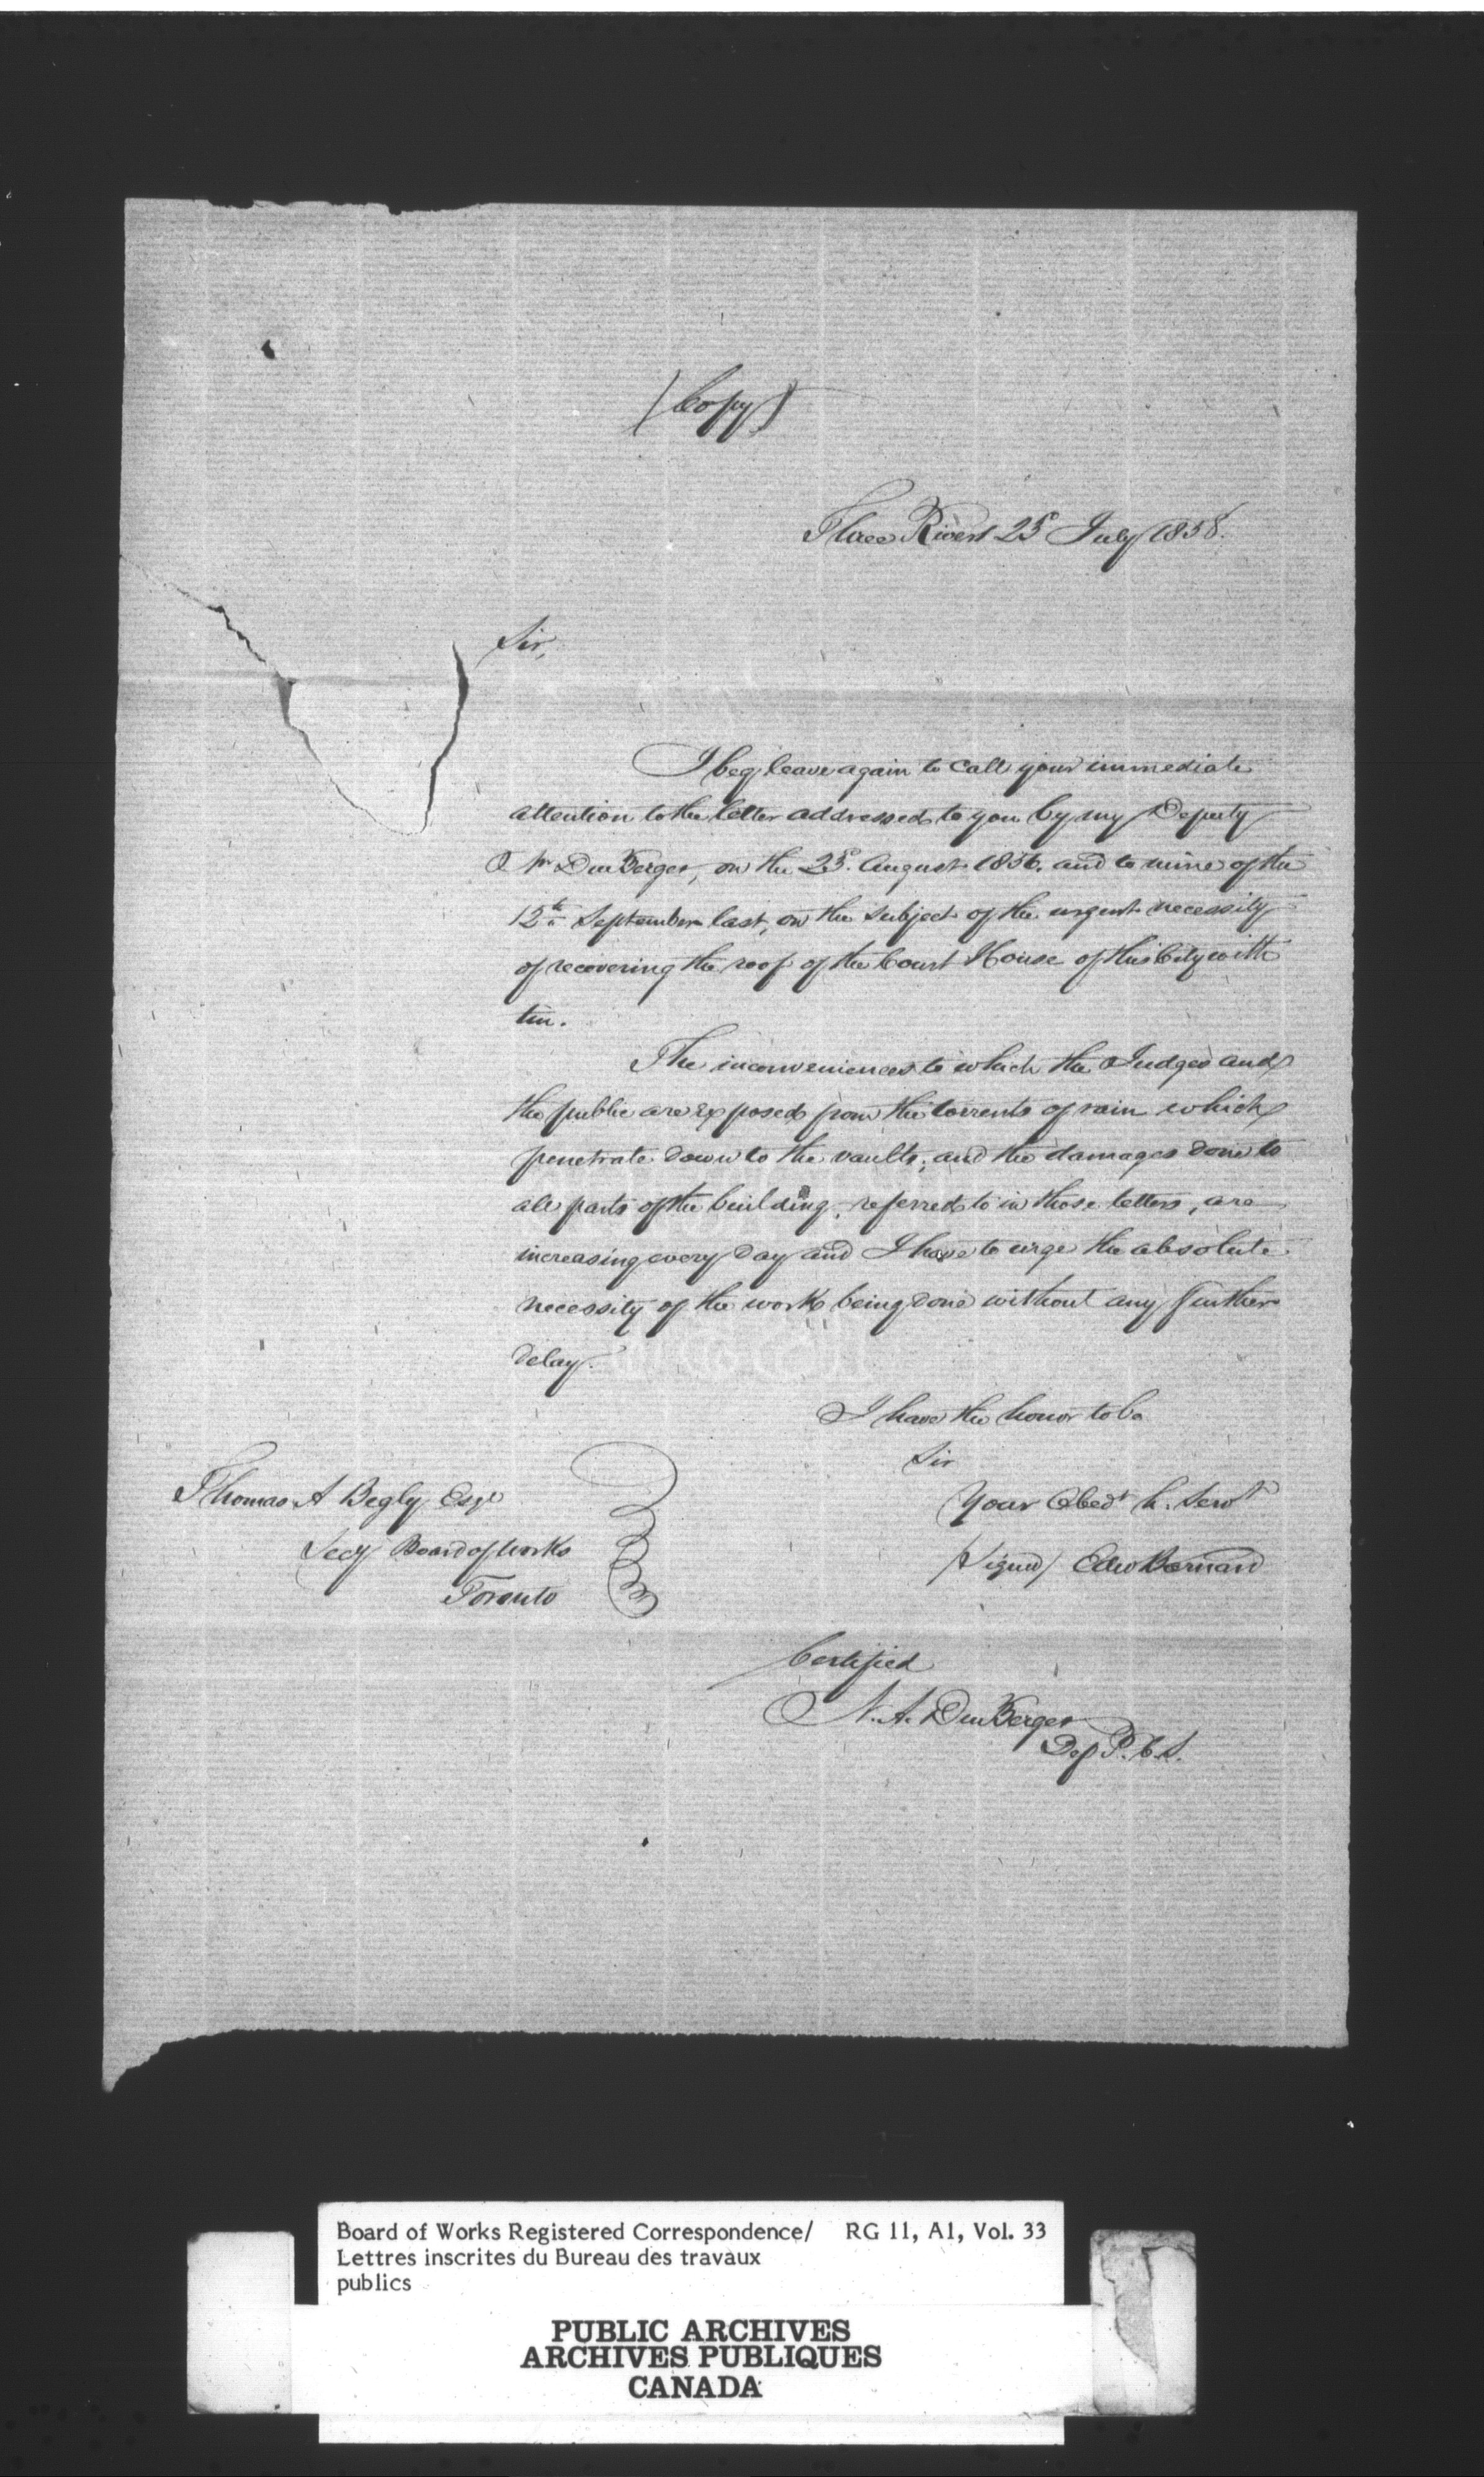 (Copy)
Three Rivers 25 July 1858.
Sir,
I beg leave again to call your immediate
attention to the letter addressed to you by my Deputy
Mr DuBerger, on the 25. August 1856. and to mine of the
12th September last, on the subject of the urgent necessity
of recovering the roof of the Court House of this City with
tin.
The inconveniences to which the Judges and
the public are exposed from the torrents of rain which
penetrate down to the vaults, and the damages done to
all parts of the building, referred to in those letters, are
increasing every day and I have to urge the absolute
necessity of the work being done without any further
delay.
I have the honor to be
Sir
Your Obedt h. Servt
(Signed) Edw Barnard
Thomas A Begly Esqr
Secy Board of Works
Toronto
Certified
N. A. DuBerger
Dep P. C. S.
Board of Works Registered Correspondence/ RG 11, A1, Vol. 33
Lettres inscrites du Bureau des travaux
publics
PUBLIC ARCHIVES
ARCHIVES PUBLIQUES
CANADA